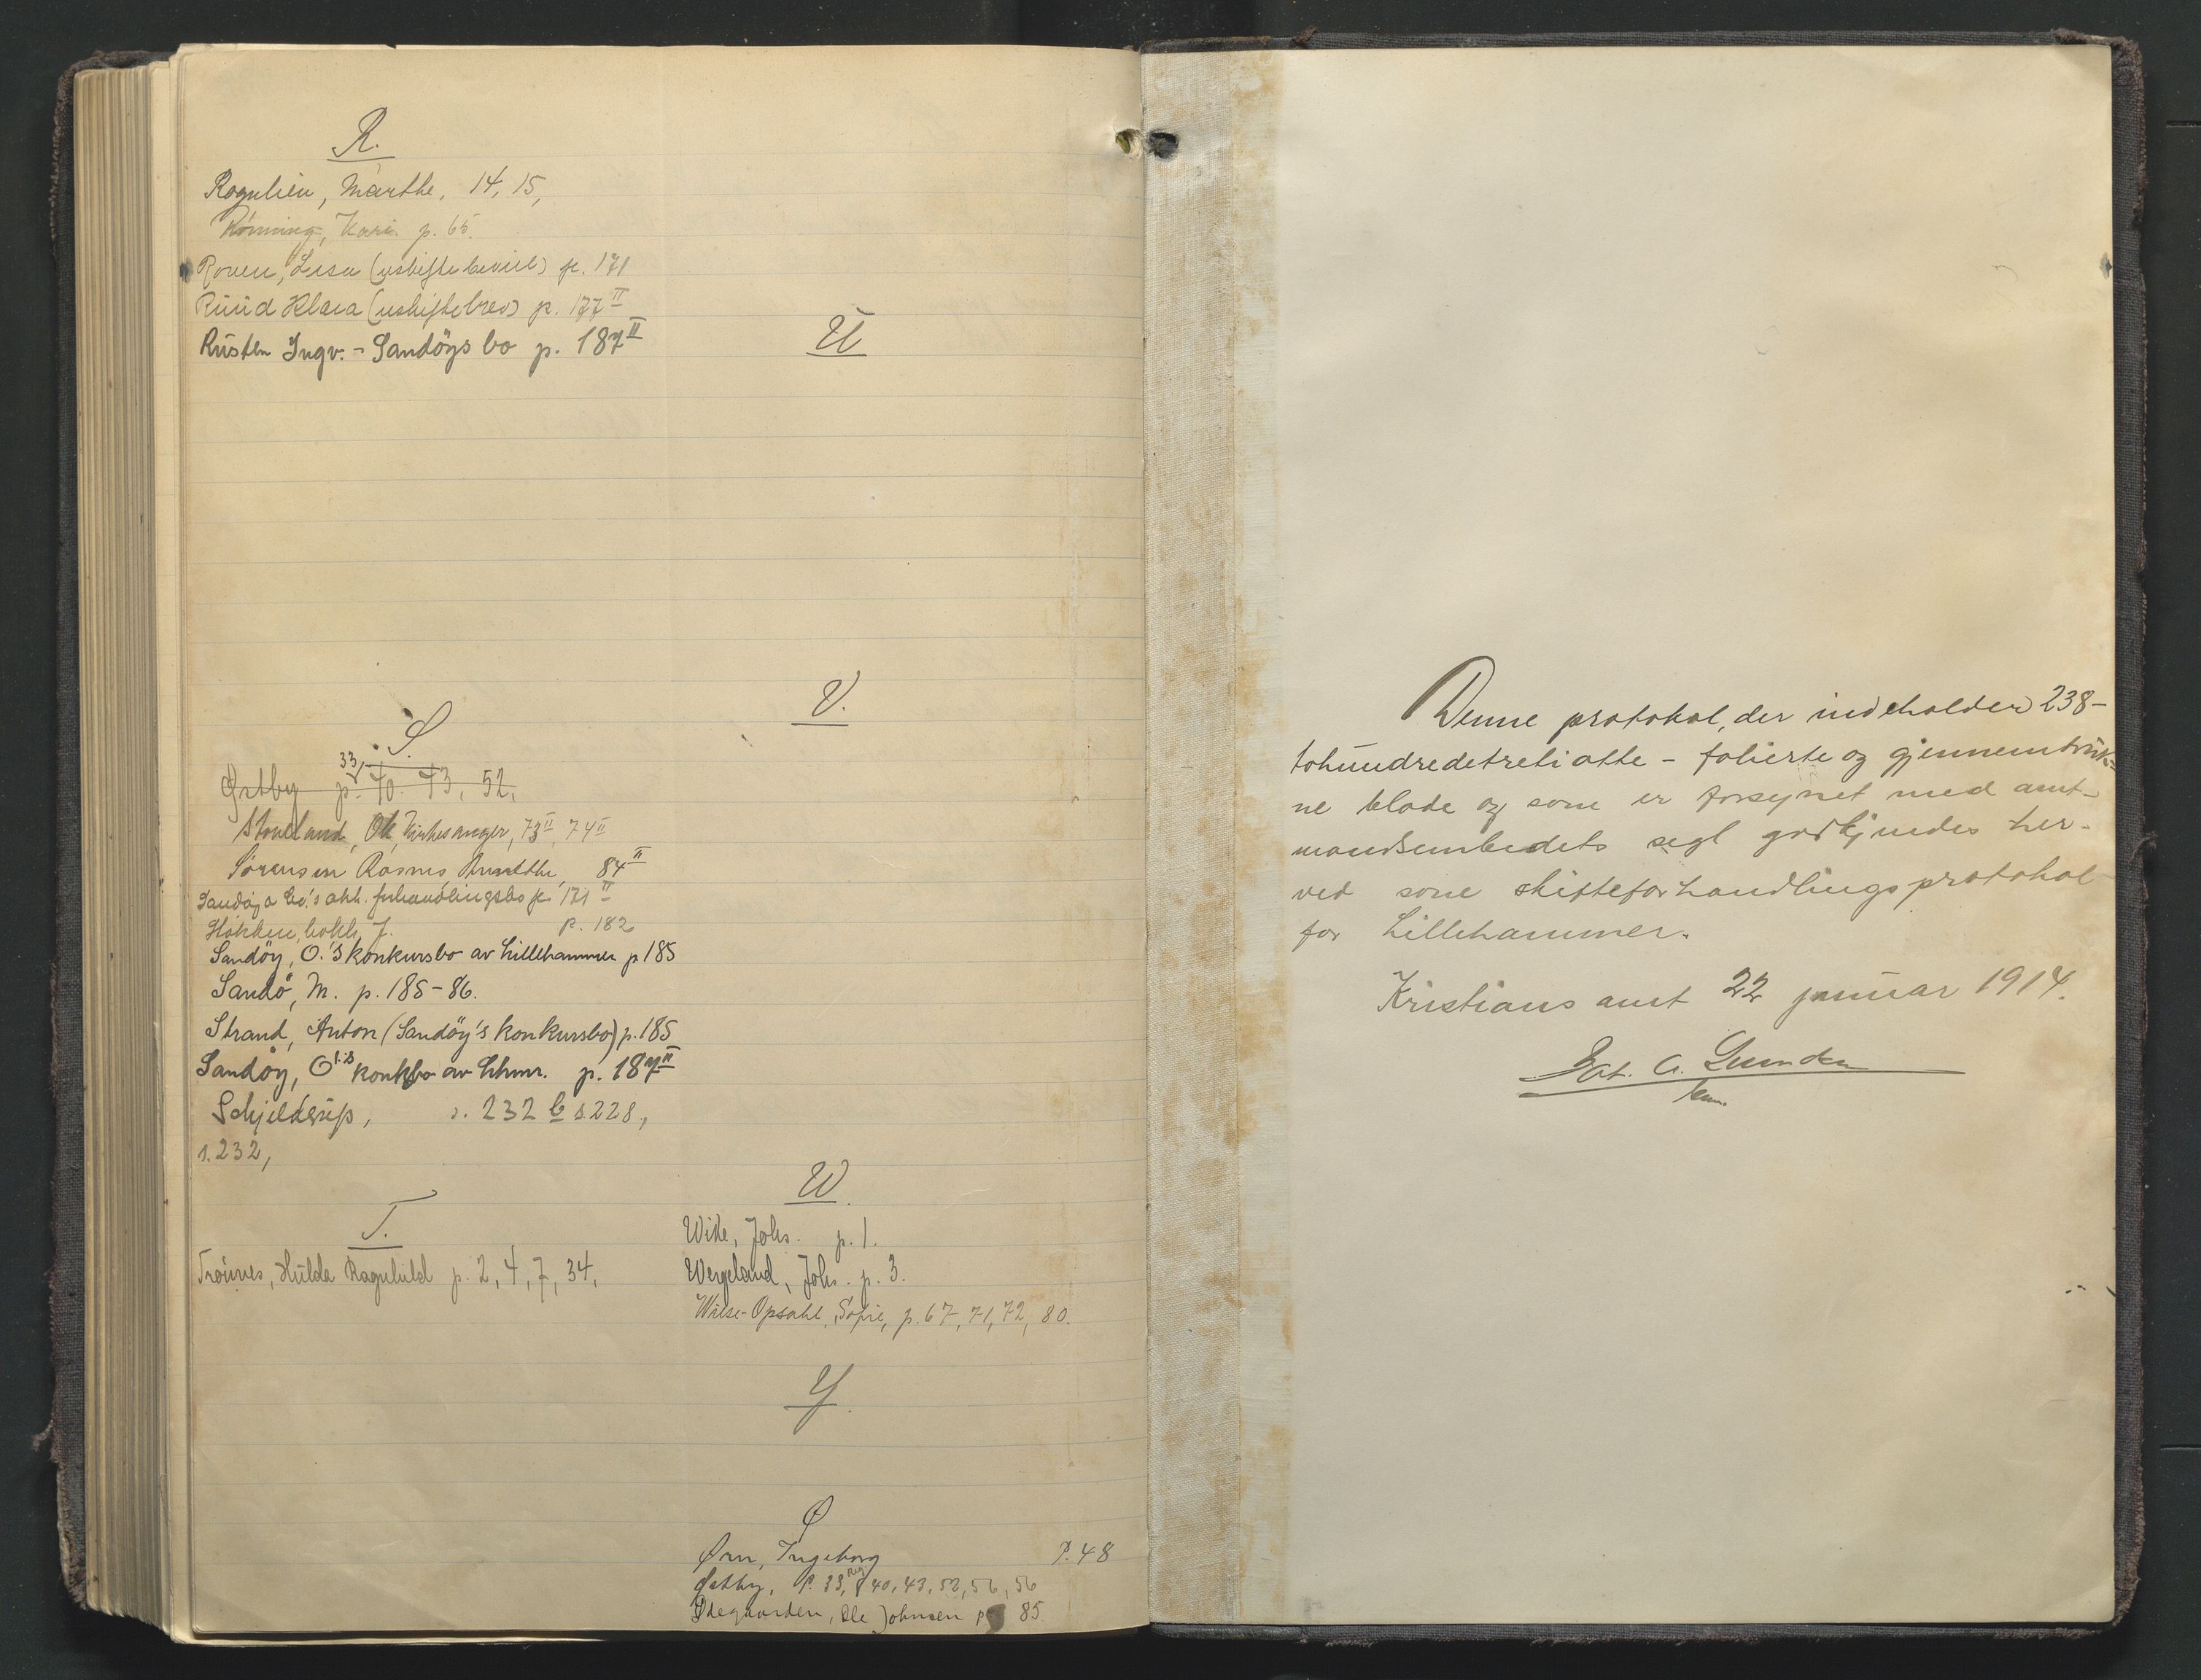 R.
Rognlien, Marthe, 14, 15,
Rönning, Kari p. 65.
Roven, Lisa (uskiftebevill) p. 171
Ruud Klara (uskiftebrev) p. 177 II
Rusten Ingv. - Sandöys bo p. 187 II
S.
33,
Østby p. 40. 43, 52,
Stoveland, Ole, kirkesanger, 73 II, 74 II
Sörensen Rasmus 84 II
Sandöy a bo's akk. forhandlingsbo p 171 II
p. 182
Sandöy, O.'s konkursbo av Lillehammer p 185
Sandö, M. p. 185-86.
Strand, Anton (Sandöy's konkursbo) p. 185
Sandöy, O's konkbo av Lhmr. p. 187 II
Schjelderup, s. 232 b s. 228,
s. 232,
T.
Hulda Ragnhild p. 2, 4, 7, 34,
U
V.
W.
Wike, Johs. p. 1.
Wergeland, Johs. p. 3.
Wiese-Opsahl, Sofie, p. 67, 71, 72, 80.
Y.
Ø
Ørn, Ingeborg P. 48
Østby, P. 33, 40, 43, 52, 56, 56
Ødegaarden, Ole Johnsen p 85
Denne protokol, der indeholder 238-
tohundredetretiotte - folierte og gjennemtruk-
ne blade og som er forsynet med amt-
mandsembedets segl godkjendes her-
ved som skifteforhandlingsprotokol
for Lillehammer.
Kristians amt 22 januar 1914.
G. Lunden